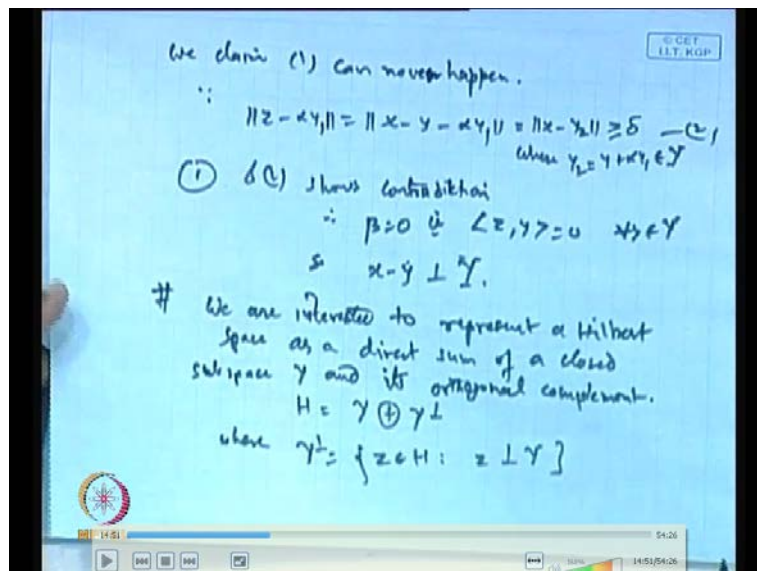 © CET
I.I.T. KGP
We claim (1) can never happen.
∵
||z - αy₁|| = ||x - y - αy₁|| = ||x - y₂|| ≥ δ —(2)
where y₂ = y + αy₁ ∈ Y
① & (2) shows contradiction
∴ β = 0 ie <z, y> = 0 ∀ y ∈ Y
So x - y ⊥ Y.
# We are interested to represent a Hilbert
space as a direct sum of a closed
subspace Y and its orthogonal complement.
H = Y ⊕ Y⊥
where Y⊥ = { z ∈ H : z ⊥ Y }
14:51
54:26
14:51/54:26